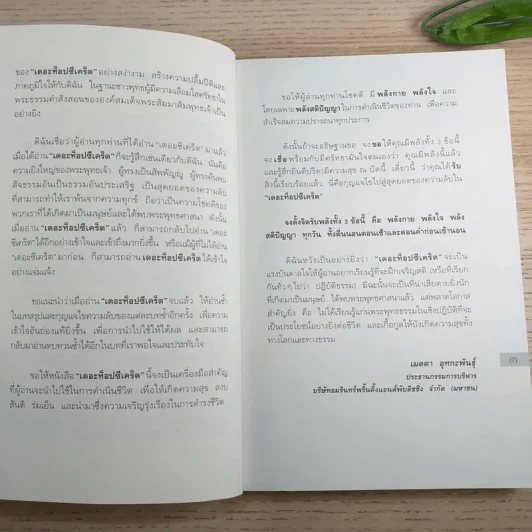 ของ "เดอะท็อปซีเคร็ต" อย่างสง่างาม สร้างความปลื้มปีติและ
ภาคภูมิใจให้กับดิฉัน ในฐานะชาวพุทธผู้มีความเลื่อมใสศรัทธาใน
พระธรรมคำสั่งสอนขององค์สมเด็จพระสัมมาสัมพุทธเจ้าเป็น
อย่างยิ่ง
ดิฉันเชื่อว่าผู้อ่านทุกท่านที่ได้อ่าน "เดอะท็อปซีเคร็ต" มาแล้ว
เมื่อได้อ่าน "เดอะท็อปซีเคร็ต" ก็จะรู้สึกเช่นเดียวกับดิฉัน นั่นคือ
ความยิ่งใหญ่ของพระพุทธเจ้า ผู้ทรงเป็นสัพพัญญู ผู้ทรงค้นพบ
สัจธรรมอันเป็นธรรมอันประเสริฐ เป็นสุดยอดของความลับ
ที่สามารถทำให้เราพ้นจากความทุกข์ ถือว่าเป็นความโชคดีของ
พวกเราที่ได้เกิดเป็นมนุษย์และได้พบพระพุทธศาสนา ดังนั้น
เมื่ออ่าน "เดอะท็อปซีเคร็ต" แล้ว ก็สามารถกลับไปอ่าน "เดอะท็อป
ซีเคร็ต" ได้อีกอย่างเข้าใจและเข้าถึงมากยิ่งขึ้น หรือแม้ผู้ที่ไม่ได้อ่าน
"เดอะท็อปซีเคร็ต" มาก่อน ก็สามารถอ่าน เดอะท็อปซีเคร็ต ได้เข้าใจ
อย่างแจ่มแจ้ง
ขอแนะนำว่าเมื่ออ่าน "เดอะท็อปซีเคร็ต" จบแล้ว ให้อ่านซ้ำ
ในบทสรุปและกุญแจไขความลับของแต่ละบทซ้ำอีกครั้ง เพื่อความ
เข้าใจอันถ่องแท้ยิ่งขึ้น เพื่อการนำไปใช้ให้ได้ผล และสามารถ
กลับมาอ่านทบทวนซ้ำได้อีกในบทที่เราพอใจและประทับใจ
ขอให้หนังสือ "เดอะท็อปซีเคร็ต" นี้จงเป็นเครื่องมือสำคัญ
ที่ผู้อ่านจะนำไปใช้ในการดำเนินชีวิต เพื่อให้เกิดความสุข สงบ
สันติ ร่มเย็น และนำมาซึ่งความเจริญรุ่งเรืองในการดำรงชีวิต
ขอให้ผู้อ่านทุกท่านโชคดี มี พลังกาย พลังใจ และ
โดยเฉพาะ พลังสติปัญญา ในการดำเนินชีวิตของท่าน เพื่อความ
สำเร็จสมความปรารถนาทุกประการ
ดังนั้นถ้าจะอธิษฐานขอ จงขอ ให้คุณมีพลังทั้ง 3 ข้อนี้
จง เชื่อ พร้อมกับมีศรัทธามั่นใจตนเองว่า คุณมีพลังนี้แล้ว
และรู้สึกยินดีปรีดามีความสุข ณ บัดนี้ เดี๋ยวนี้ ว่าคุณได้ รับ
สิ่งนี้เรียบร้อยแล้ว นี่คือกุญแจไขไปสู่สุดยอดของความลับใน
"เดอะท็อปซีเคร็ต"
จงตั้งจิตรับพลังทั้ง 3 ข้อนี้ คือ พลังกาย พลังใจ พลัง
สติปัญญา ทุกวัน ทั้งตื่นนอนตอนเช้าและตอนค่ำก่อนเข้านอน
ดิฉันหวังเป็นอย่างยิ่งว่า "เดอะท็อปซีเคร็ต" จะเป็น
แรงบันดาลใจให้ผู้อ่านอยากเรียนรู้ที่จะฝึกเจริญสติ (หรือที่เรียก
กันทั่วๆ ไปว่า ปฏิบัติธรรม) มิฉะนั้นจะเป็นที่น่าเสียดายยิ่งนัก
ที่เกิดมาเป็นมนุษย์ ได้พบพระพุทธศาสนาแล้ว แต่พลาดโอกาส
สำคัญยิ่ง คือ ไม่ได้เรียนรู้แก่นพระพุทธธรรมในเชิงปฏิบัติที่จะ
เป็นประโยชน์อย่างยิ่งต่อชีวิต และเกื้อกูลให้บังเกิดความสุขทั้ง
ทางโลกและทางธรรม
เมตตา อุทกะพันธุ์
ประธานกรรมการบริหาร
บริษัทอมรินทร์พริ้นติ้งแอนด์พับลิชชิ่ง จำกัด (มหาชน)
(7)